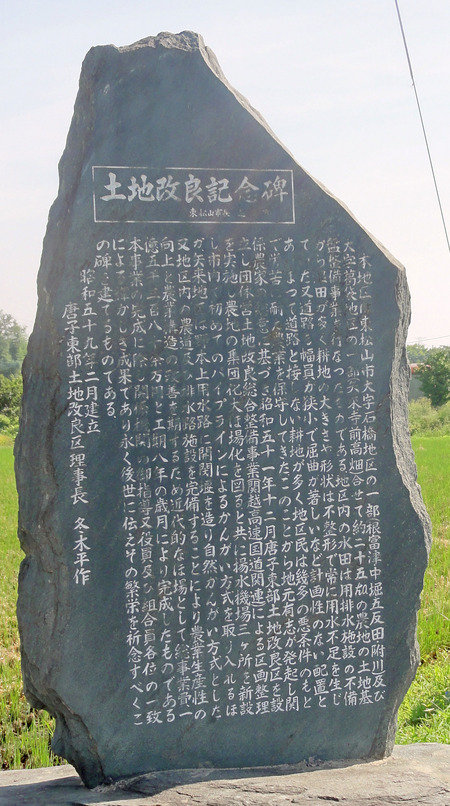 土地改良記念碑
東松山市長
本地区は東松山市大字石橋地区の一部根富津中堀五反田附川及び
大字葛袋地区の一部矢来寺前高畑合せて約二十五haの農地の土地基
盤整備事業を行なったものである地区内の水田は用排水施設の不備
がつ田が多く耕地の大きさや形状は不整形で常に用水不足を生じ
て又道路も幅員が狭小で屈曲が著しいなど計画性のない配置と
あいまって道路と接しない耕地が多く地区民は幾多の悪条件のもと
で労苦に耐え農業を保守してきたこのことから地元有志が発起し関
係農家の同意に基づき昭和五十一年十二月唐子東部土地改良区を設
立し団体営土地改良総合整備事業(関越高速国道関連)による区画整理
を実施し農地の集団化大ほ場化を図ると共に揚水機場三ヶ所を新設
し市内で初めてのパイプラインによるかんがい方式を取り入れるほ
か矢来地区は根本上用水路に開閉堰を造り自然かんがい方式とした
又地区内の農道及び排水路施設を完備することにより農業生産性の
向上と農業構造の改善を期するため近代的なほ場として総事業費一
億五千二百八十余万円と工期八年の歳月により完成したものである
本事業の完成に際し関係機関の御指導又役員及び組合員各位の一致
による輝かしき成果であり永く後世に伝えその繁栄を祈念すべくこ
の碑を建てるものである
昭和五十九年二月建立
唐子東部土地改良区理事長 冬木平作